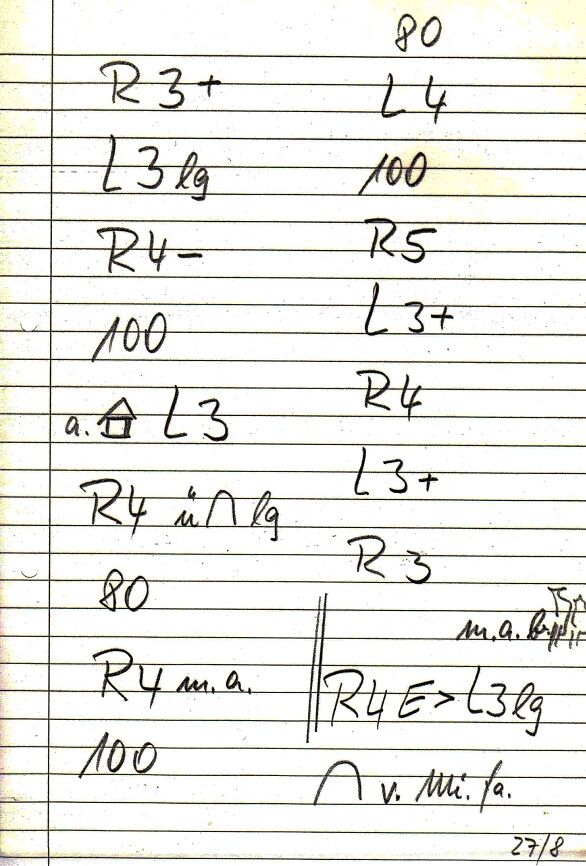 R3+
L3 lg
R4-
100
a. L3
R4 ü∩ lg
80
R4 m.a.
100
80
L4
100
R5
L3+
R4
L3+
R3
m.a.
R4 E> L3 lg
∩ v. Mi. fa.
27/8